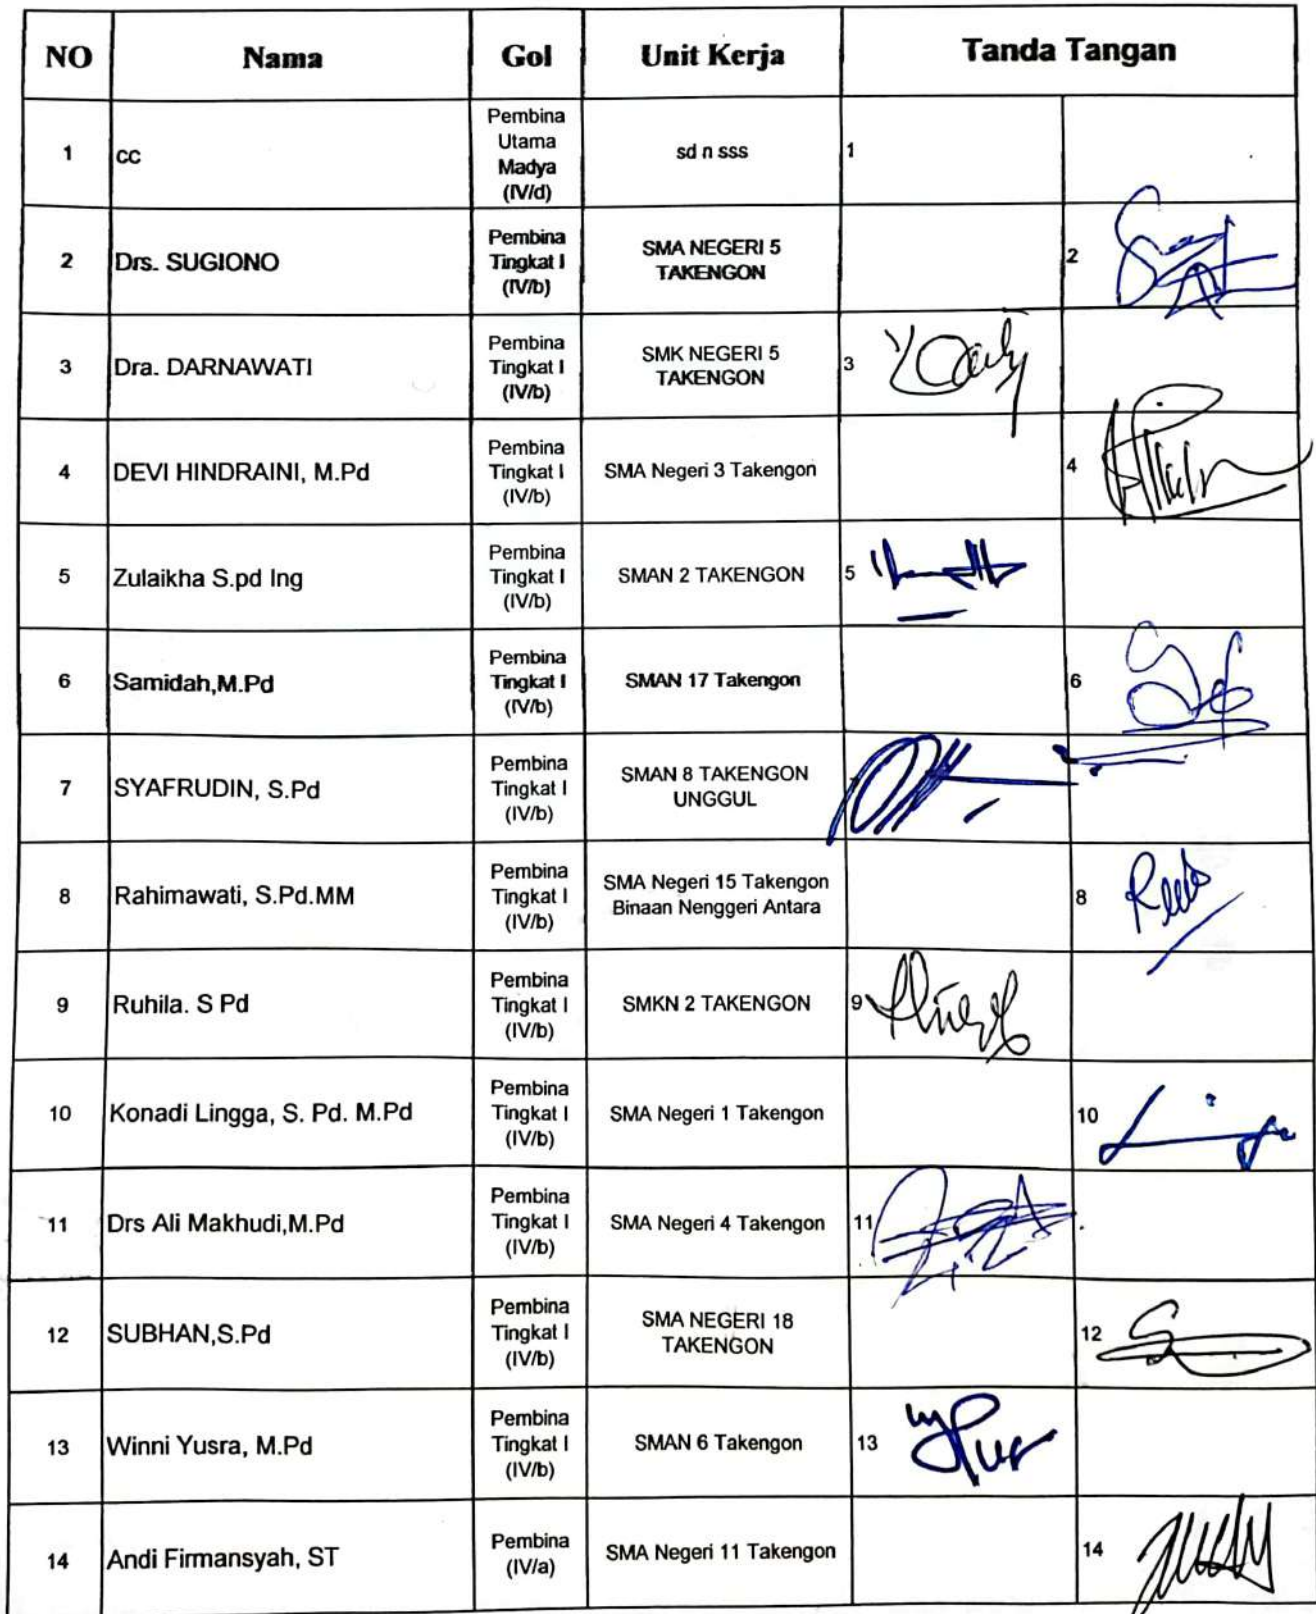 NO Nama Gol Unit Kerja Tanda Tangan
1 cc Pembina Utama Madya (IV/d) sd n sss 1
2 Drs. SUGIONO Pembina Tingkat I (IV/b) SMA NEGERI 5 TAKENGON 2
3 Dra. DARNAWATI Pembina Tingkat I (IV/b) SMK NEGERI 5 TAKENGON 3
4 DEVI HINDRAINI, M.Pd Pembina Tingkat I (IV/b) SMA Negeri 3 Takengon 4
5 Zulaikha S.pd Ing Pembina Tingkat I (IV/b) SMAN 2 TAKENGON 5
6 Samidah,M.Pd Pembina Tingkat I (IV/b) SMAN 17 Takengon 6
7 SYAFRUDIN, S.Pd Pembina Tingkat I (IV/b) SMAN 8 TAKENGON UNGGUL
8 Rahimawati, S.Pd.MM Pembina Tingkat I (IV/b) SMA Negeri 15 Takengon Binaan Nenggeri Antara 8
9 Ruhila. S Pd Pembina Tingkat I (IV/b) SMKN 2 TAKENGON 9
10 Konadi Lingga, S. Pd. M.Pd Pembina Tingkat I (IV/b) SMA Negeri 1 Takengon 10
11 Drs Ali Makhudi,M.Pd Pembina Tingkat I (IV/b) SMA Negeri 4 Takengon 11
12 SUBHAN,S.Pd Pembina Tingkat I (IV/b) SMA NEGERI 18 TAKENGON 12
13 Winni Yusra, M.Pd Pembina Tingkat I (IV/b) SMAN 6 Takengon 13
14 Andi Firmansyah, ST Pembina (IV/a) SMA Negeri 11 Takengon 14